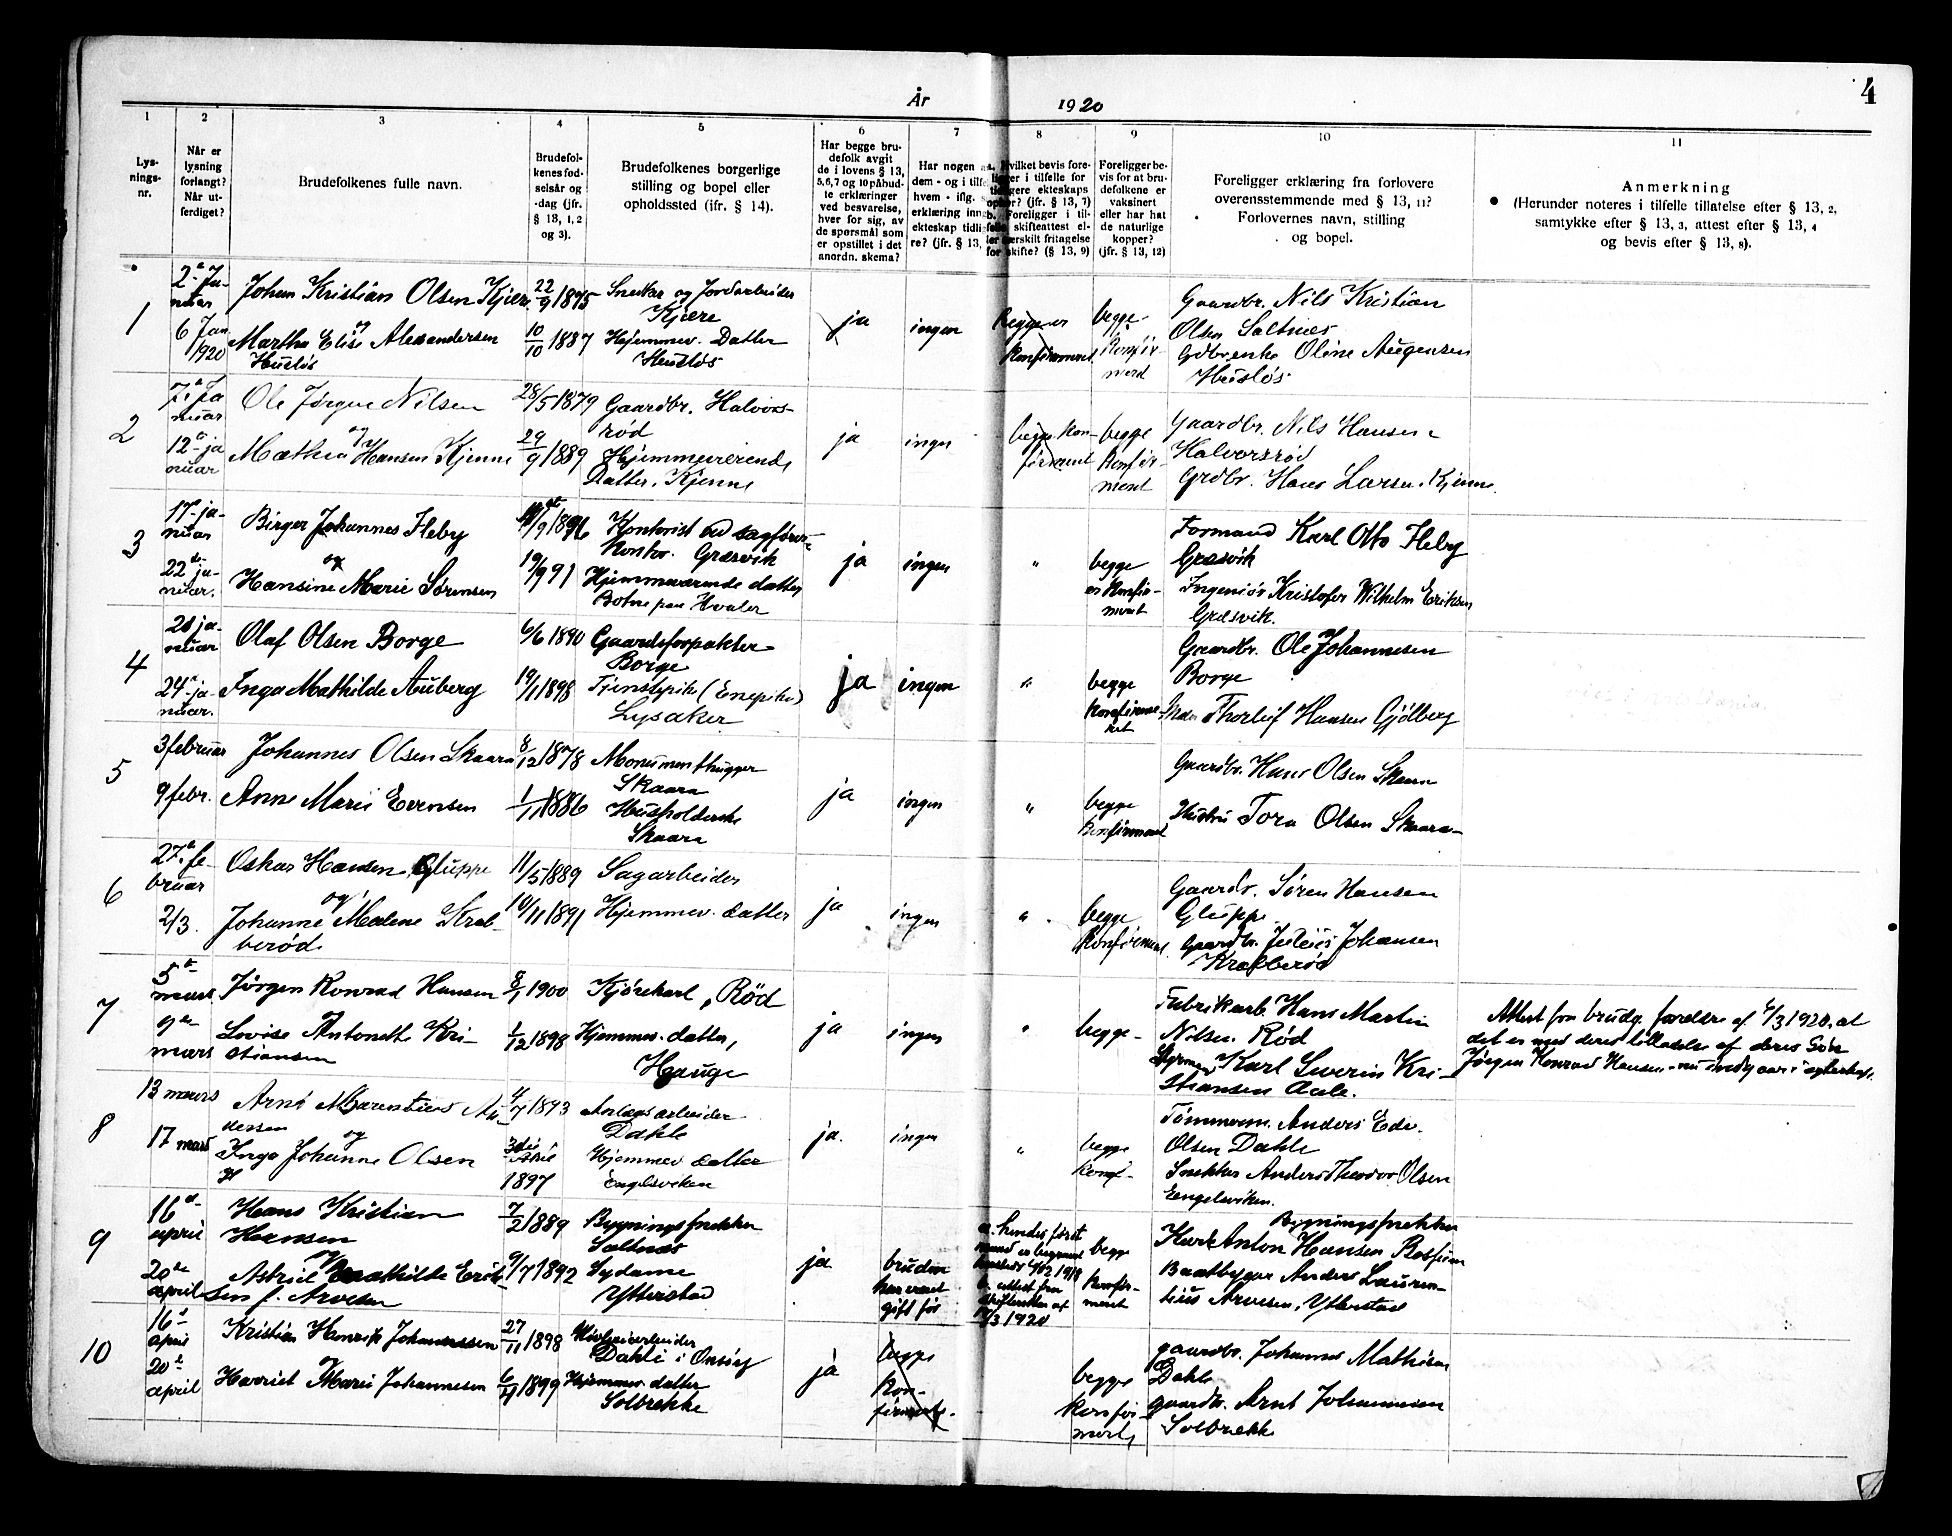 År 1920
4
1 2 3 4 5 6 7 8 9 10 11
Lys-
nings-
nr.
Når er
lysning
forlangt?
Når ut-
ferdiget?
Brudefolkenes fulle navn.
Brudefol-
kenes fød-
selsår og
-dag (jfr.
§ 13, 1, 2
og 3).
Brudefolkenes borgerlige
stilling og bopel eller
opholdssted (ifr. § 14).
Har begge bru-
defolk avgit
de i lovens § 13,
5,6,7 og 10 påbud-
te erklæringer
ved besvarelse,
hver for sig, av
de spørsmål som
er opstillet i det
anordn. skema?
Har nogen av
dem - og i tilf
hvem - iflg.
erklæring inng
ekteskap tidli
re? (jfr. § 13,
a. Hvilket bevis fore-
ligger i tilfelle for
tidligere ekteskaps
ophør? (jfr. § 13, 7)
b. Foreligger i til-
felle skifteattest el-
ler særskilt fritagelse
for skifte? (§ 13, 9)
Foreligger be-
vis for at bru-
defolkene er
vaksinert
eller har hat
de naturlige
kopper?
(jfr. § 13, 12)
Foreligger erklæring fra forlovere
overensstemmende med § 13, 11?
Forlovernes navn, stilling
og bopel.
Anmerkning
(Herunder noteres i tilfelle tillatelse efter § 13, 2,
samtykke efter § 13, 3, attest efter § 13, 4
og bevis efter § 13, 8).
1
2n Ja-
nuar
6 Jan
1920
Johan Kristian Olsen Kjære
og
Martha Elise Alexandersen
Husløs
22/9 1875
10/10 1887
Snekker og Jordarbeider
Kjære
Hjemmev. Datter
Husløs
ja
ingen
begge er
konfirmeret
begge
konfir-
merd
Gaardbr. Nils Kristian
Olsen Saltnes
Gdbrenke Oline Augensen
Husløs
2
7de ja
nuar
12te ja
nuar
Ole Jørgen Nilsen
og
Mathea Hansen Kjenne
28/5 1879
29/9 1889
Gaardbr. Halvors-
rød
Hjemmeværende
Datter. Kjenne
ja
ingen
begge kon-
firment
begge
konfir-
ment
Gaardbr. Nils Hansen
Halvorsrød
Grdbr. Hans Larsen. Kjenne
3
17de ja-
nuar
22de ja-
nuar.
Birger Johannes Fleby
og
Hansine Marie Sørensen
/9 1896
19/9 91
Kontorist ved sagfører-
kontor. Græsvik
Hjemmeværende datter
Botne paa Hvaler
ja
ingen
"
begge
er konfir-
meret
Formand Karl Otto Fleby
Græsvik
Ingeniør Kristofer Wilhelm Eriksen
Græsvik.
4
21 ja-
nuar
24de ja-
nuar.
Olaf Olsen Borge
Inga Mathilde Auberg
6/6 1890
19/1 1898
Gaardsforpakter
Borge
Tjenstepike (Enepike)
Lysaker
ja
ingen
"
begge
konfirme-
ret
Gaardbr. Ole Johannesen
Borge
Thorleif Hansen Gjølberg
5
3 februar
9 febr.
Johannes Olsen Skaara
Anne Marie Evensen
8/12 1878
1/11 1886
Monumenthugger
Skaara
Husholderske
Skaara
ja
ingen
"
begge
konfirment
Gaardbr. Hans Olsen Skaara
Hustru Tora Olsen Skaara
6
27de fe-
bruar
2/3.
Oskar Hansen Gluppe
og
Johanne Malene Kral-
berød
11/5 1889
14/11 1891
Sagarbeider
Hjemmev. datter
ja
ingen
"
begge
konfirment
Gaardbr. Søren Hansen
Gluppe.
Gaardbr. Julius Johansen
Kralberød
7
5te
mars
9de
mars
Jørgen Konrad Hansen
Lovise Antonette Kri-
stiansen
8/1 1900
1/12 1898
Kjørekarl, Rød
Hjemmev. datter,
Hauge
ja
ingen
"
begge
Fabrikarb. Hans Martin
Nilsen Rød
Styrmand Karl Severin Kri-
stiansen Aale.
Attest fra brudg. forældre af 4/3 1920, at
det er med deres tilladelse af deres Søn
Jørgen Konrad Hansen nu indgaar i egteskab.
8
13 mars
17 mars
Arne Marentius An-
dersen
og
Inga Johanne Olsen
4/7 1893
1897
Anlægsarbeider
Dahle
Hjemmev datter
Engelsviken
ja.
ingen
"
begge
konf-
Tømmerm. Anders Edv.
Olsen Dahle
Snekker Anders Theodor Olsen
Eengelsviken.
9
16de
april
20de
april
Hans Kristian
Hansen
og
Astrid Mathilde Erik-
sen f. Arvesen
7/2 1889
9/7 1892
Bygningssnekker
Saltnes
Sydame
Ytterstad
ja
bruden
har været
gift før
a. hendes først
mand er begravet
b. attest fra
skifteretten af
/3 1920
begge
konfir-
ment
Bygningssnekker
Anton Hansen
Baatbygger Anders Lauren-
tius Arvesen, Ytterstad
10
16de
april
20de
april
Kristian Henrik Johannessen
og
Harriet Marie Johannesen
27/11 1898
6/4 1899
Dahle i Onsøy
Hjemmev. datter
Solbrekke
ja
begge
kon-
firment.
begge
konfir-
mert,
gaardbr. Johannes Mathisen
Dahle
gaardbr. Arnt Johannesen
Solbrekke